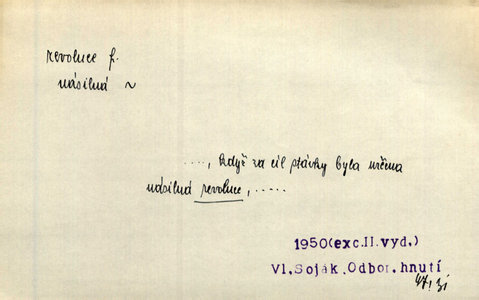 revoluce f.
násilná ~
...., když za cíl stávky byla určena
násilná revoluce, .....
1950(exc.II.vyd.)
Vl.Soják.Odbor.hnutí